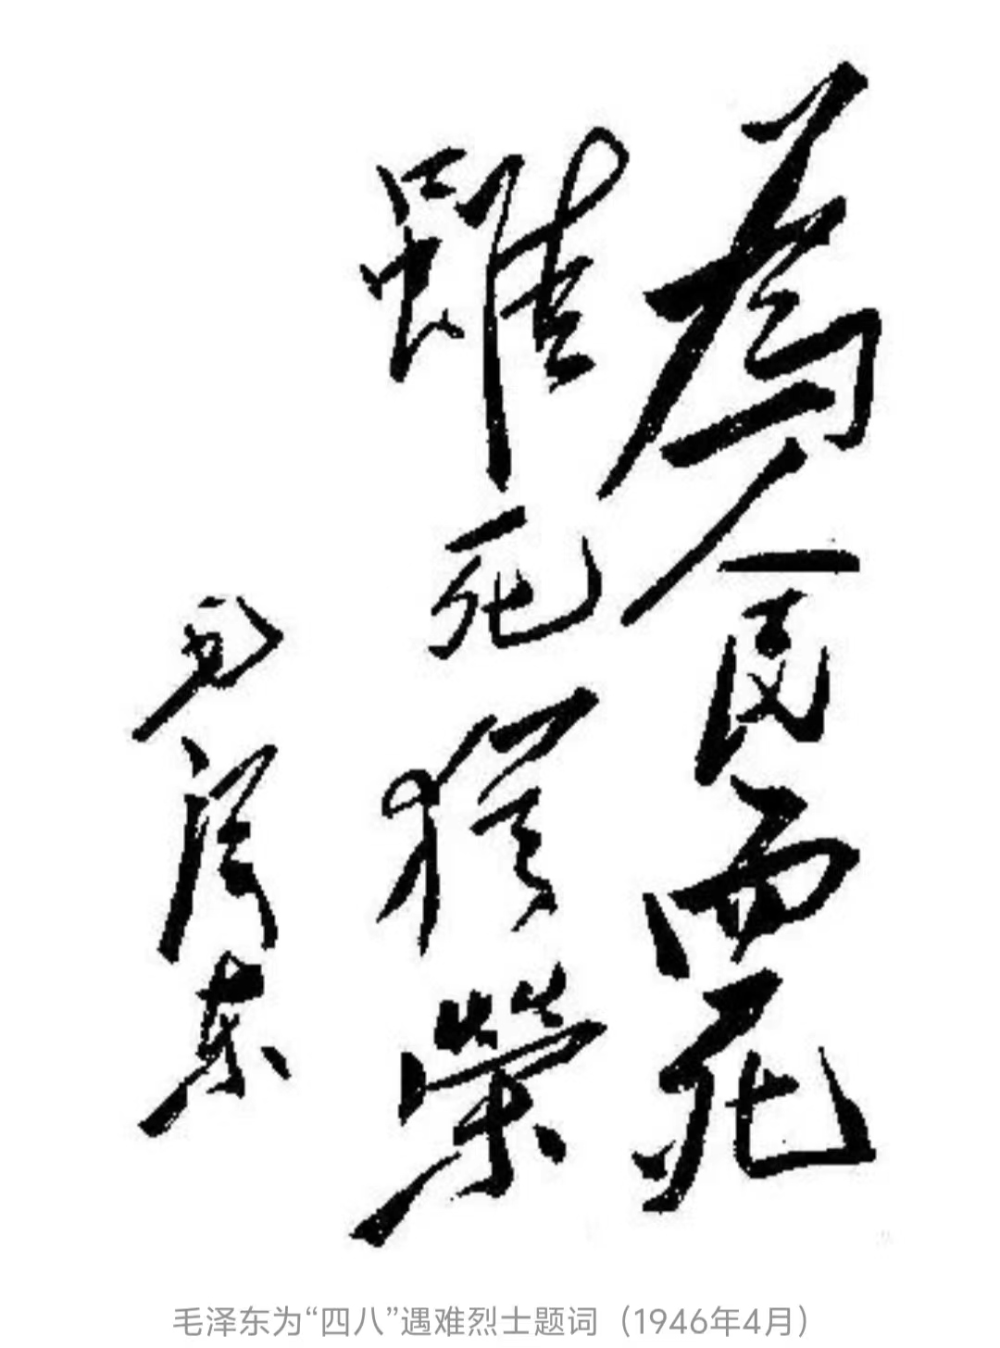 為人民而死
雖死猶榮
毛澤东
毛泽东为“四八”遇难烈士题词（1946年4月）